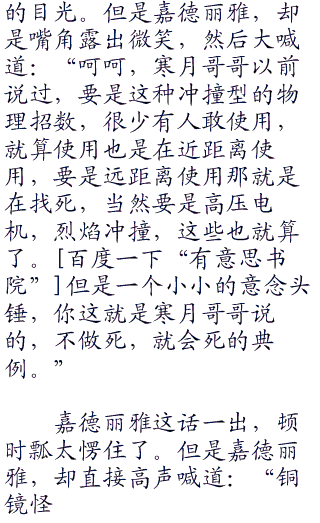 的目光。但是嘉德丽雅，却
是嘴角露出微笑，然后大喊
道：“呵呵，寒月哥哥以前
说过，要是这种冲撞型的物
理招数，很少有人敢使用，
就算使用也是在近距离使
用，要是远距离使用那就是
在找死，当然要是高压电
机，烈焰冲撞，这些也就算
了。[百度一下“有意思书
院”]但是一个小小的意念头
锤，你这就是寒月哥哥说
的，不做死，就会死的典
例。”
嘉德丽雅这话一出，顿
时瓢太愣住了。但是嘉德丽
雅，却直接高声喊道：“铜
镜怪